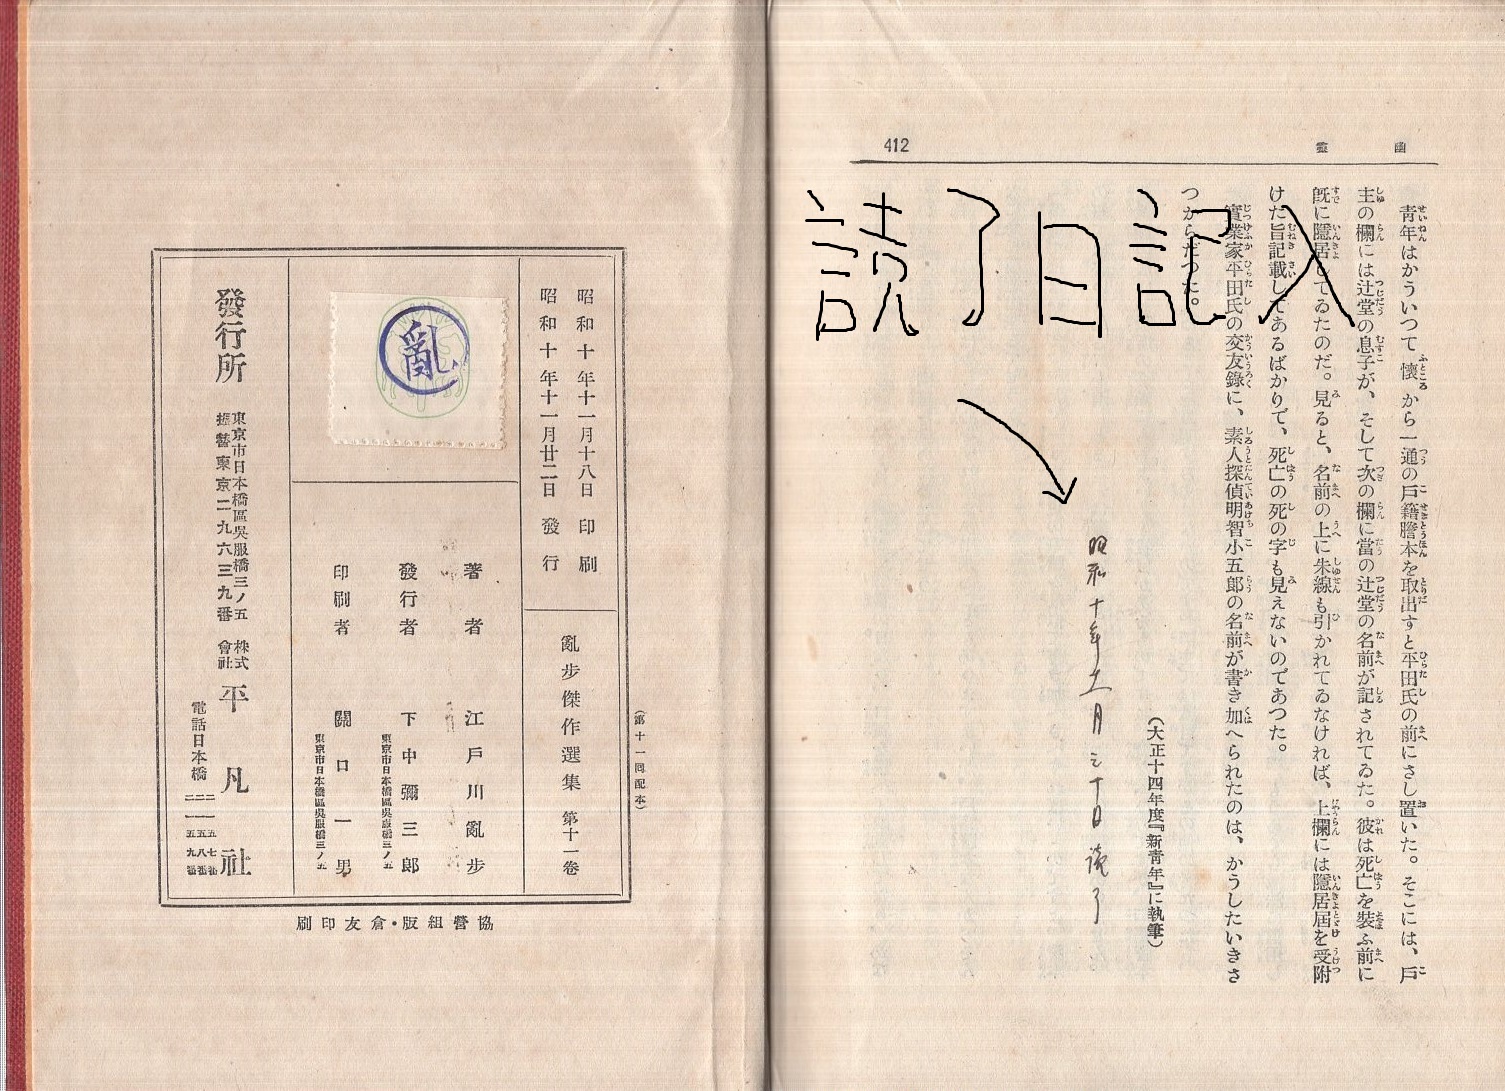 412
幽靈
青年はかういつて懷から一通の戸籍謄本を取出すと平田氏の前にさし置いた。そこには、戸
主の欄には辻堂の息子が、そして次の欄に當の辻堂の名前が記されてゐた。彼は死亡を裝ふ前に
既に隱居してゐたのだ。見ると、名前の上に朱線も引かれてゐなければ、上欄には隱居屆を受附
けた旨記載してあるばかりで、死亡の死の字も見えないのであつた。
實業家平田氏の交友錄に、素人探偵明智小五郎の名前が書き加へられたのは、かうしたいきさ
つからだつた。
(大正十四年度『新靑年』に執筆)
読了日記入
昭和十年十一月三十日読了
(第十一回配本)
昭和十年十一月十八日 印刷
昭和十年十一月廿二日 發行
亂步傑作選集 第十一卷
亂
著者 江戸川亂步
發行者 下中彌三郎
東京市日本橋區吳服橋三ノ五
印刷者 關口一男
東京市日本橋區吳服橋三ノ五
發行所
東京市日本橋區吳服橋三ノ五
振替東京二九六三九番
株式會社 平凡社
電話日本橋
協營組版・倉友印刷